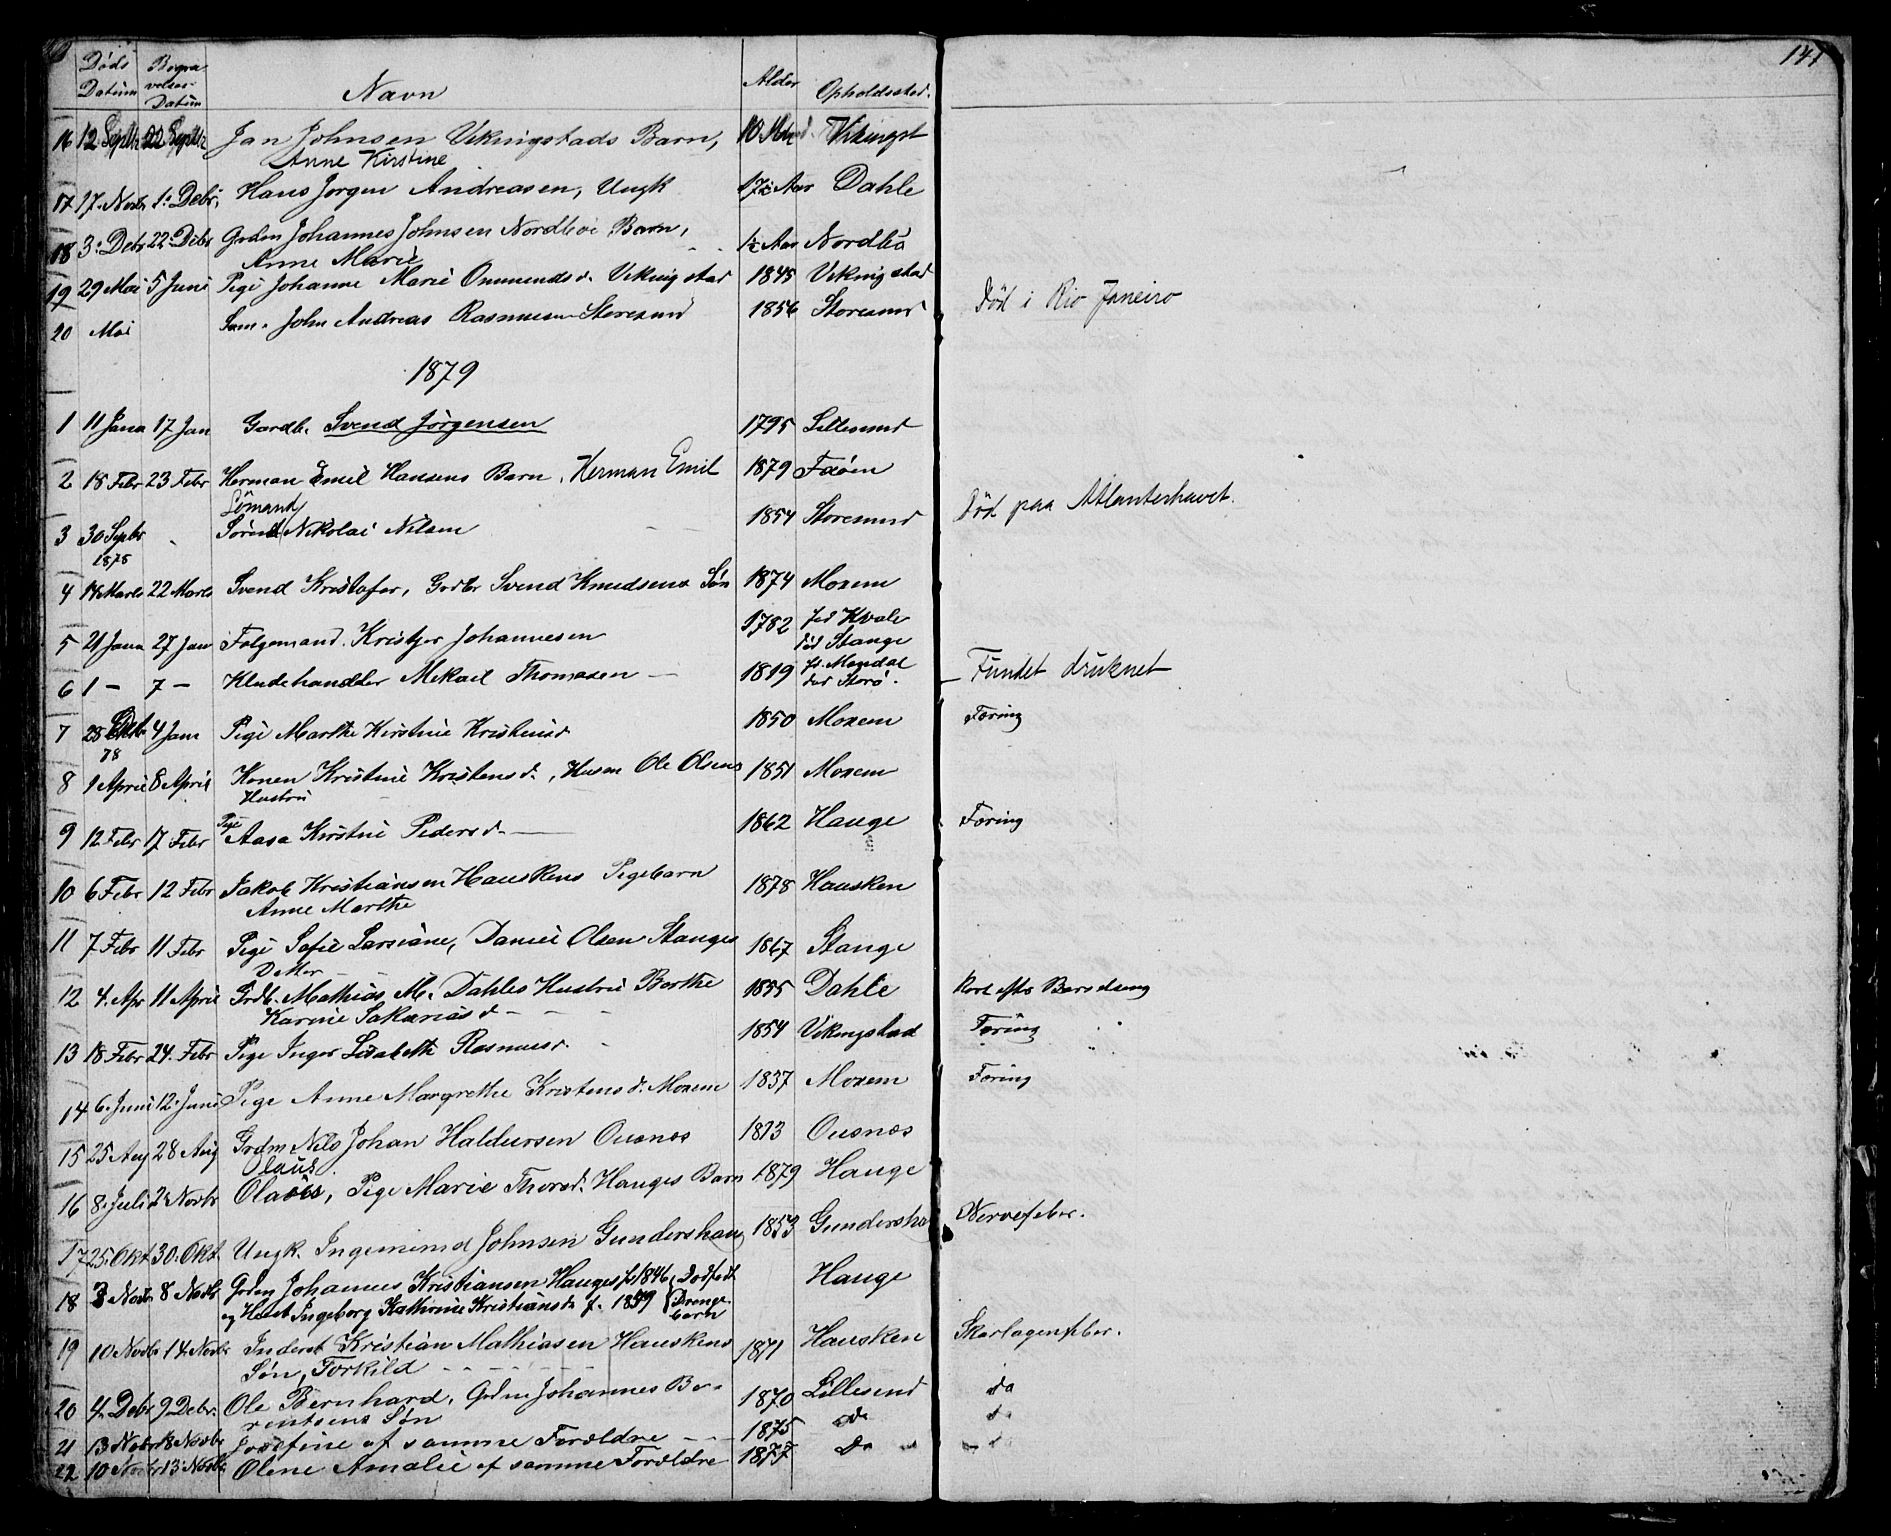 141
Døds Datum Begravelses-Datum Navn Alder Opholdssted.
16 12 Septbr 22 Septbr Jan Johnsen Vikingstads Barn, Vikingst
Anne Kirstine
17 17. Novbr 1. Debr. Hans Jørgen Andreasen, Ungk 17½ Aar Dahle
18 3. Debr 22. Debr Grdm Johannes Johnsen Nordbøe Barn, ½ Aar Nordbø
Anne Marie
19 29 Mai 5 Juni Pige Johanne Marie Ommundsd. Vikingstad 1845 Vikingstad
20 Mai Søm. John Andreas Rasmusen Storesund 1856 Storesund Død i Rio Janeiro
1879
1 11 Janu 17 Jan Gaardb. Svend Jørgensen 1795 Lillesund
2 18 Febr 23 Febr Herman Emil Hansens Barn, Herman Emil 1879 Fæøen
Sømand
3 30 Septbr Søren Nikolai Nilsen 1854 Storesund Død paa Atlanterhavet.
1878
4 14 Marts 22 Marts Svend Kristofer, Grdbr Svend Knudsens Søn 1874 Moxem
5 21 Janu 27 Jan Følgemand. Kristjer Johannesen 1782 fød Hvale
død Stange
6 1 - 7 - Kludehandler Mekael Thomasen 1819 fd. Mandal Fundet druknet
død Storø.
7 28 4 Jan Pige Marthe Kirstine Kristensd 1850 Moxem Tæring
78
8 1 April 8 April Konen Kristine Kristensd., Husm Ole Olsens 1851 Moxem
Hustru
9 12 Febr 17 Febr Pige Aasa Kirstine Pedersd. 1862 Hauge Tæring
10 6 Febr 12 Febr Jakob Kristiansen Hauskens Pigebarn 1878 Hausken
Anne Marthe
11 7 Febr 11 Febr Pige Sofie Larsiane, Daniel Olsen Stanges 1867 Stange
Datter
12 4. Apr 11 April Grdb. Mathias M. Dahles Hustru Berthe 1855 Dahle Kort efter Barselseng
Karine Sakariasd
13 18 Febr 24. Febr Pige Inger Lisabeth Rasmusd. 1854 Vikingstad Tæring
14 6. Juni 12. Juni Pige Anne Margrethe Kristensd. Moxem 1837 Moxem Tæring
15 25 Aug 28 Aug Grdm Nils Johan Haldorsen Ousnæs 1813 Ousnæs
Olaus
16 8. Juli 2 Novbr Olaus, Pige Marie Thorsd. Hauges Barn 1879 Hauge
17 25. Okt. 30. Okt. Ungk. Ingemund Johnsen Gundershaug 1853 Gundersha Nervefeber.
18 3 Novbr 8 Novbr Grdm Johannes Kristiansen Hauges f. 1846, Dødfødt Hauge
og Hust. Ingeborg Kathrine Kristiansd. f. 1859 Drengebarn
19 10 Novbr 14 Novbr Inderst Kristian Mathiasen Hauskens 1871 Hausken Skarlagensfeber.
Søn, Torkild
20 4. Debr 9 Debr. Ole Bernhard, Grdm Johannes Be- 1870 Lillesund do
rentsens Søn
21 13 Novbr 18 Novbr Josefine af samme Forældre 1875 do do
22 10 Novbr 13. Novbr Olene Amalie af samme Forældre 1877 Do do